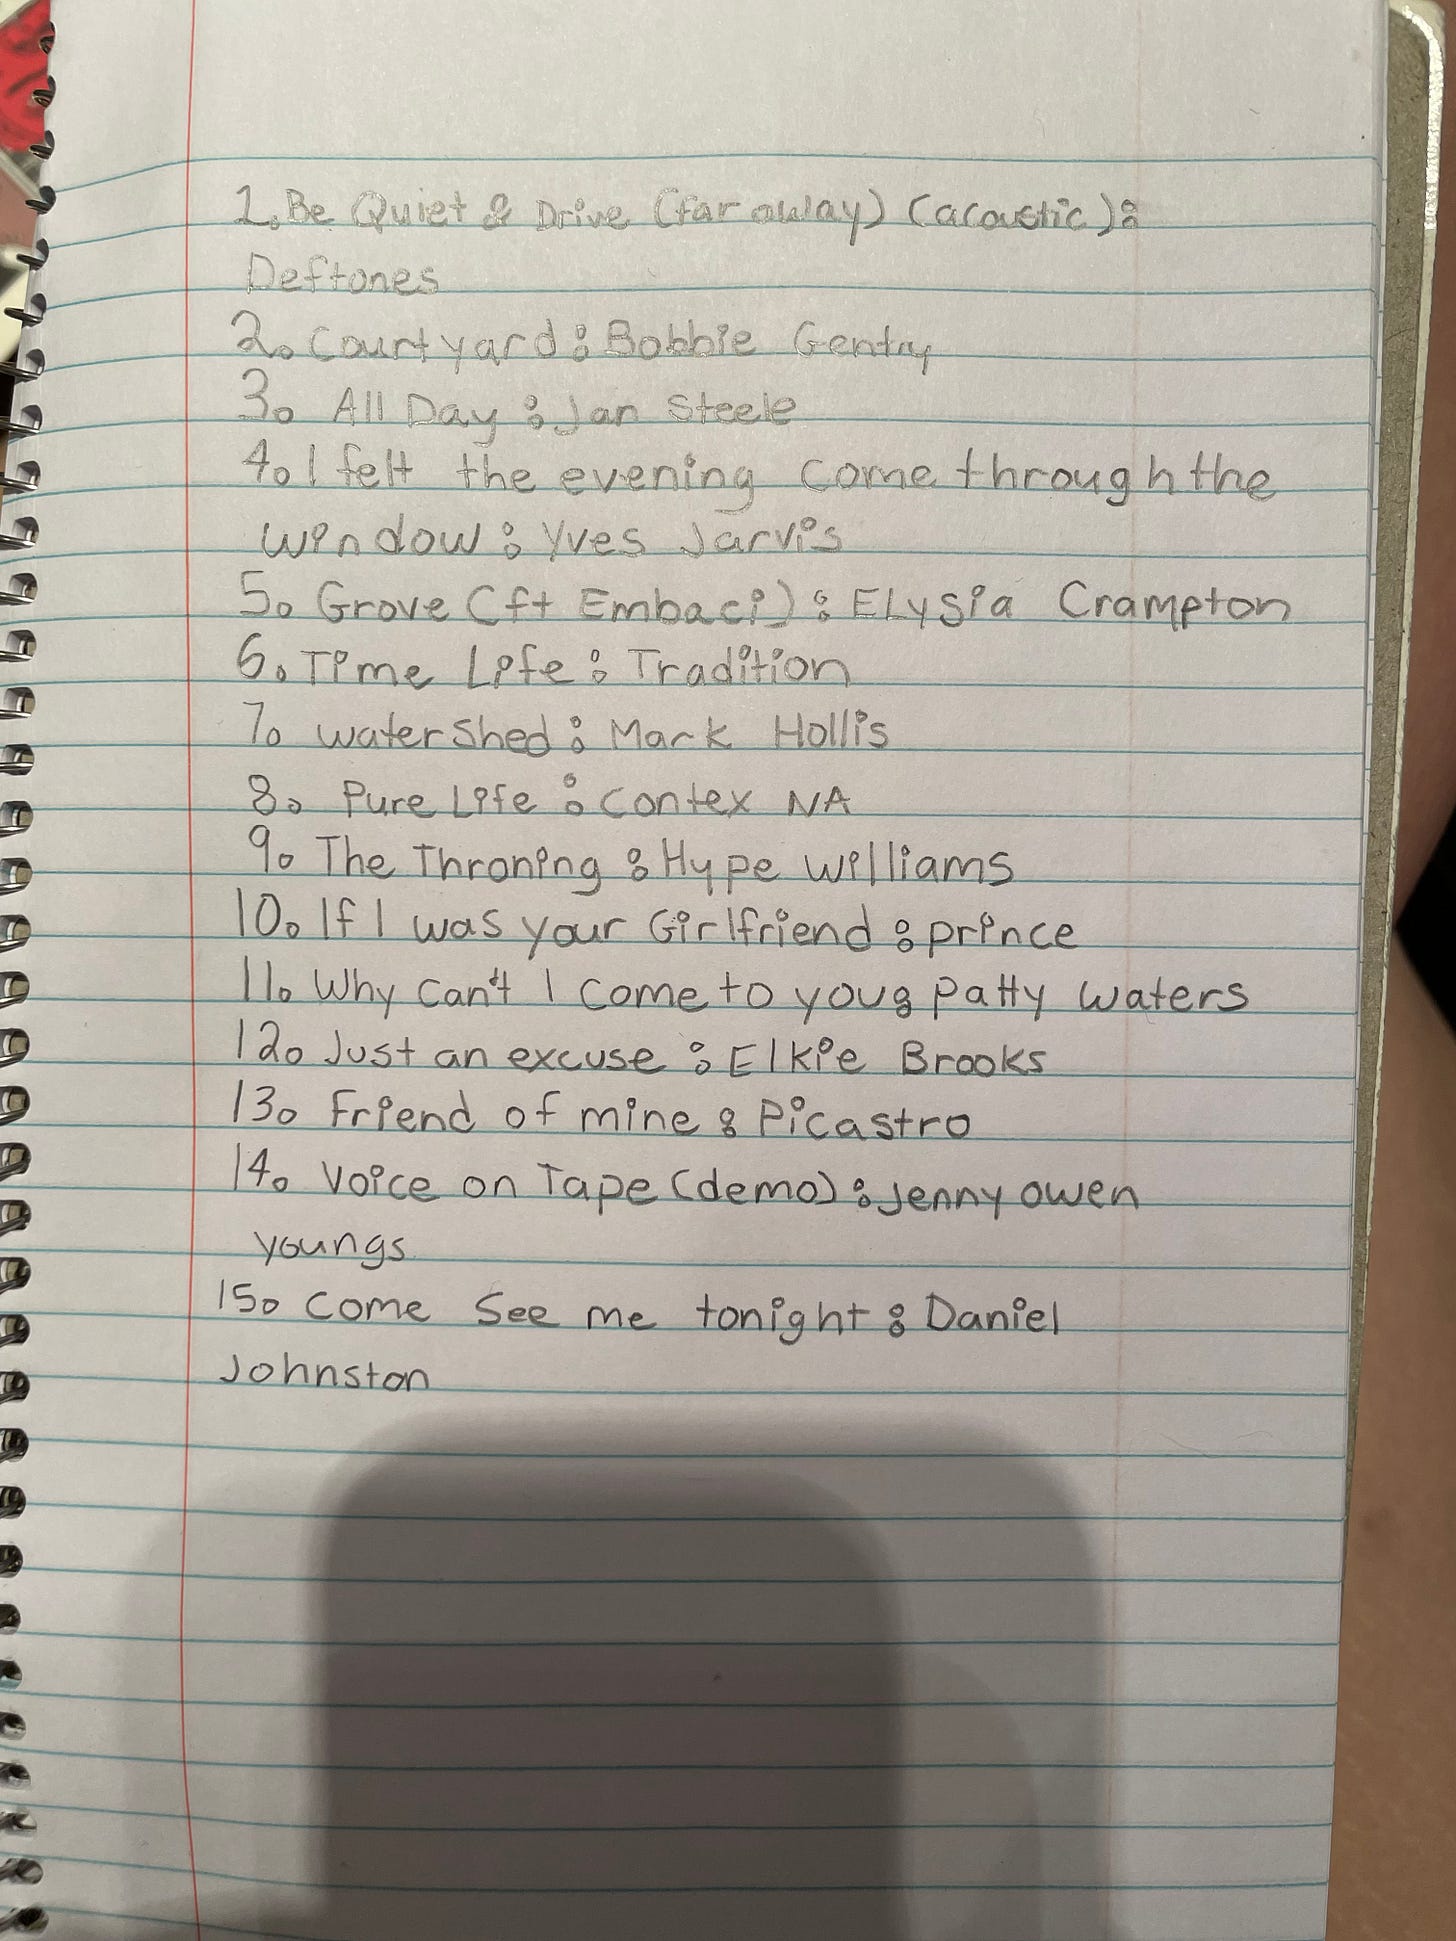 1. Be Quiet & Drive (far away) (acoustic):
Deftones
2. Courtyard: Bobbie Gentry
3. All Day: Jan Steele
4. I felt the evening come through the
window: Yves Jarvis
5. Grove (ft Embaci): Elysia Crampton
6. Time Life: Tradition
7. Watershed: Mark Hollis
8. Pure Life: Contex NA
9. The Throning: Hype Williams
10. If I was your Girlfriend: prince
11. Why can't I come to you: Patty Waters
12. Just an excuse: Elkie Brooks
13. Friend of mine: Picastro
14. Voice on Tape (demo): Jenny Owen
Youngs
15. Come See me tonight: Daniel
Johnston